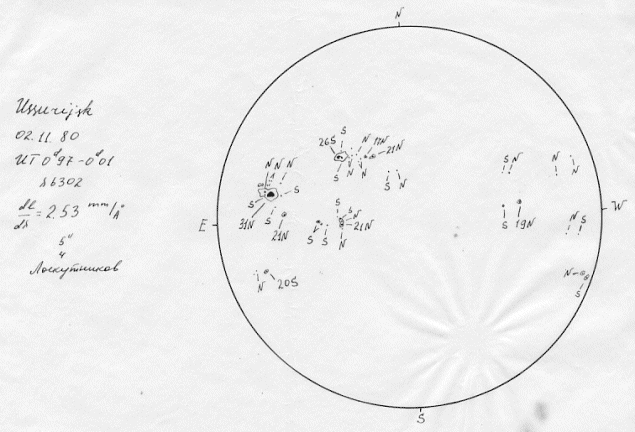 N
Ussurijsk
02.11.80
UT 0ᵈ97-0ᵈ01
λ6302
dl/dλ = 2.53 mm/Å
5"
4
Лоскутников
E
W
S
S
26S
N
17N
21N
N
N
S
N
N
N
N
S
S
31N
S
21N
S
S
N
21N
S
S
N
N
20S
S
N
N
N
S
19N
N
S
N
S